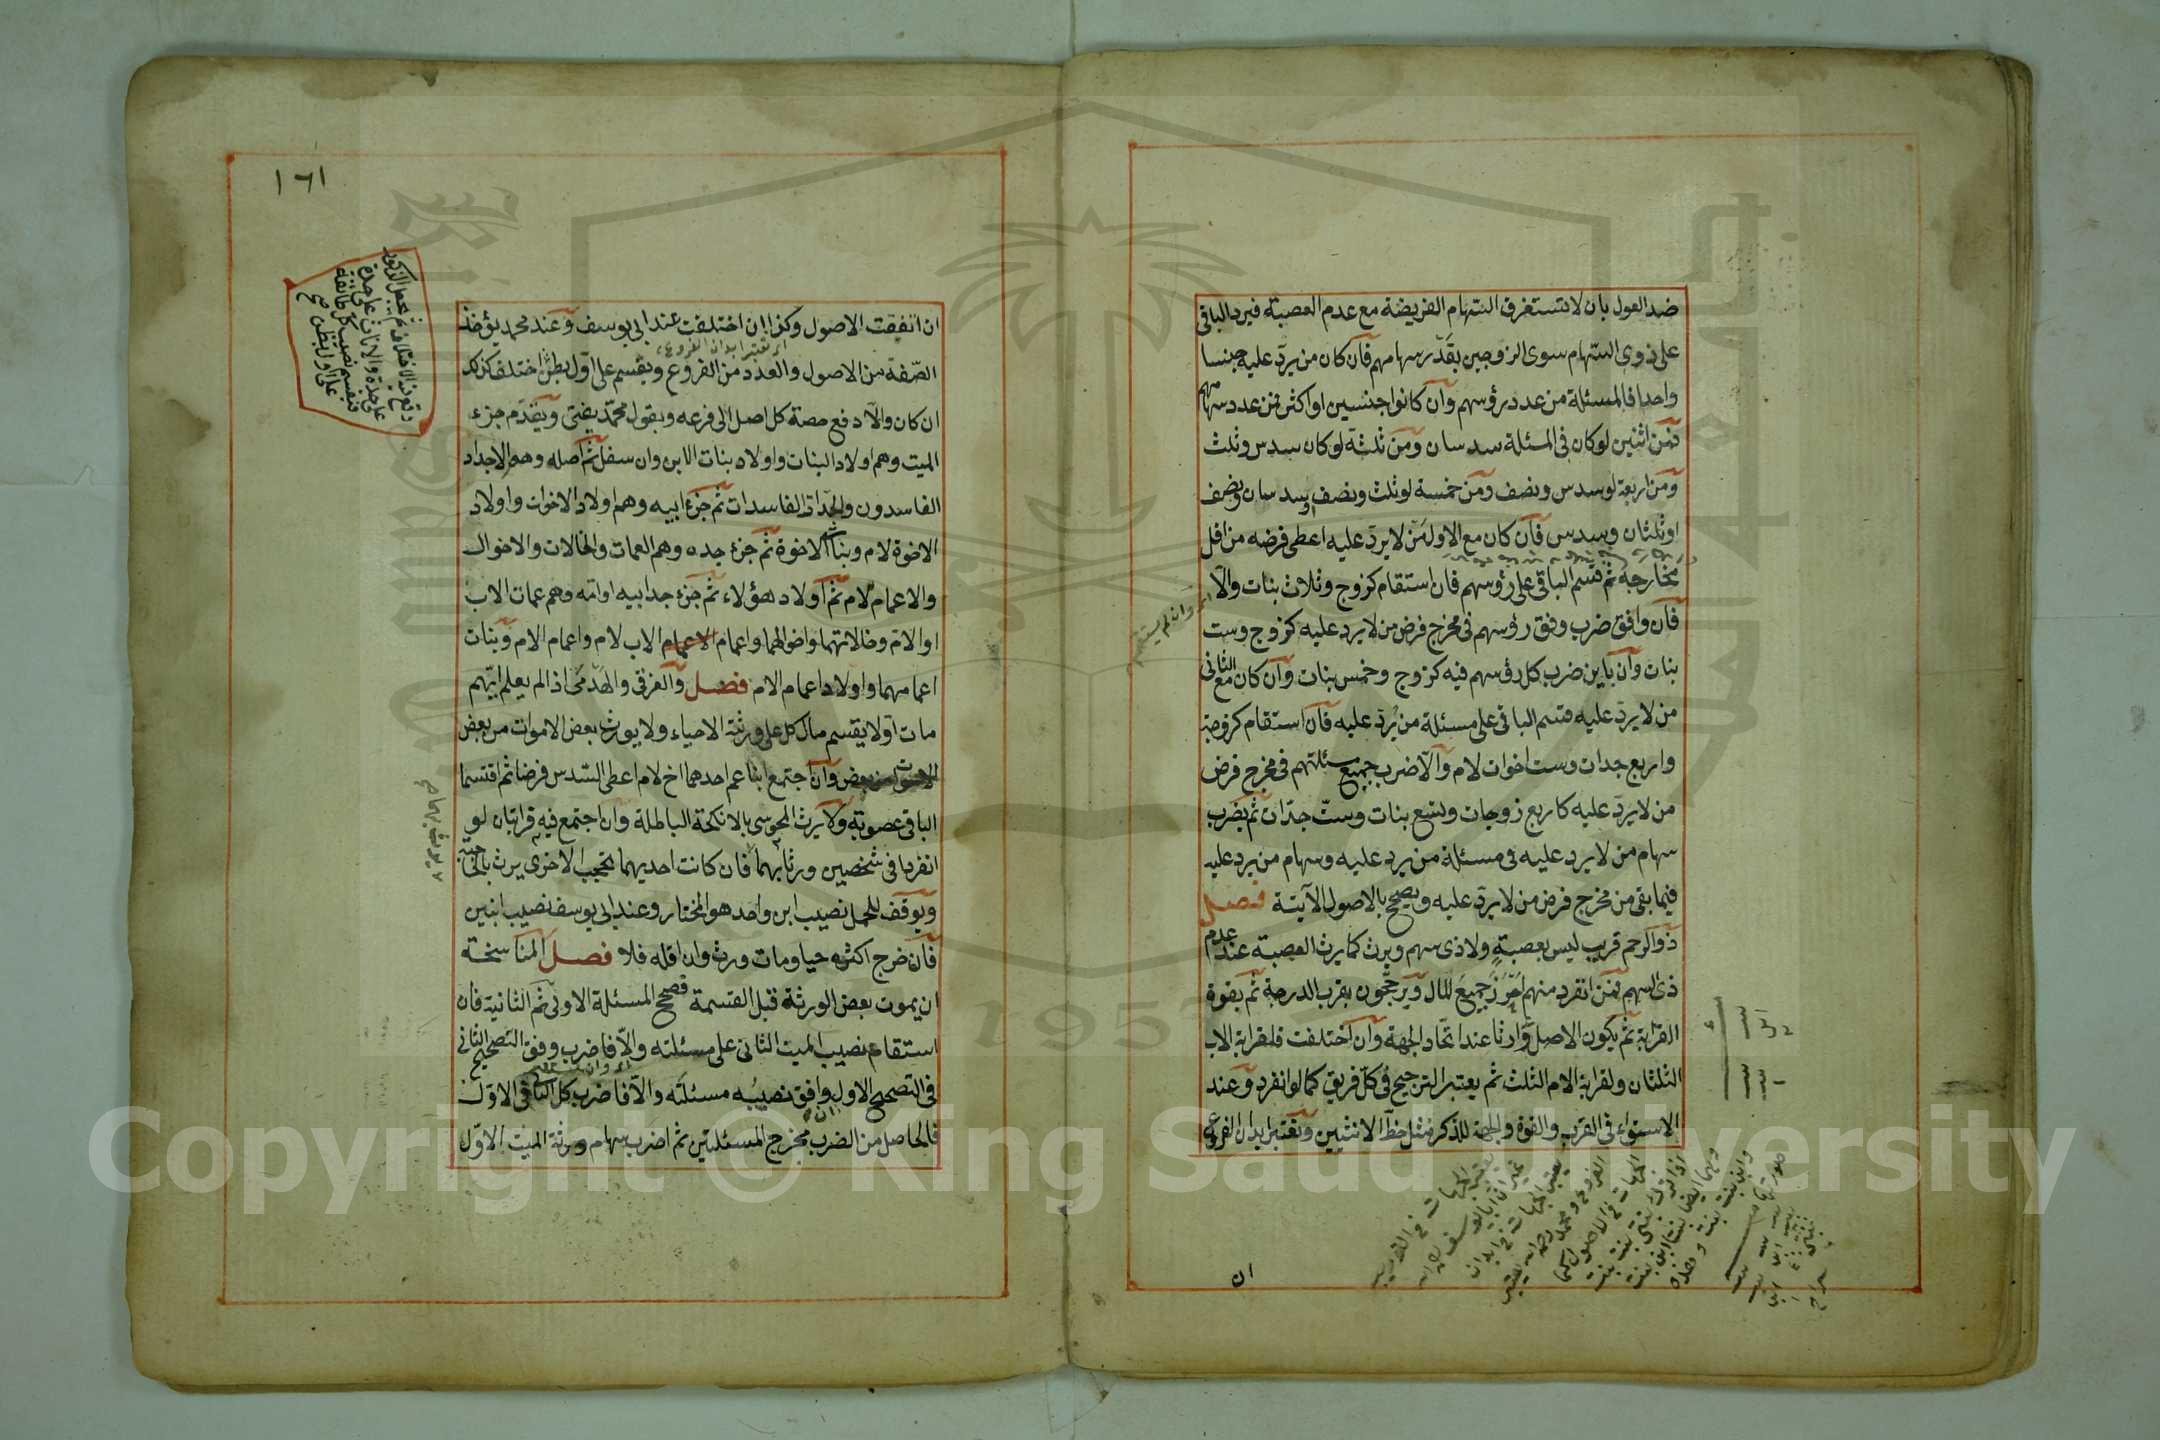 ضد العول بان لا تستغرق السهام الفريضة مع عدم العصبة فيرد الباقى
على ذوى السهام سوى الزوجين بقدر سهامهم فان كان من يرد عليه جنسا
واحدا فالمسئلة من عدد رؤسهم وان كانوا جنسين او اكثر فمن عدد سهامهم
فمن اثنين لو كان فى المسئلة سدسان ومن ثلثة لو كان سدس وثلث
ومن اربعة لو سدس ونصف ومن خمسة لو ثلث ونصف او سدسان ونصف
او ثلثان وسدس فان كان مع الاول من لا يرد عليه اعطى فرضه من اقل
مخارجه ثم قسم الباقى على رؤسهم فان استقام كزوج وثلاث بنات والا
فان وافق ضرب وفق رؤسهم فى مخرج فرض من لا يرد عليه كزوج وست
بنات وان باين ضرب كل رؤسهم فيه كزوج وخمس بنات وان كان مع الثانى
من لا يرد عليه قسم الباقى على مسئلة من يرد عليه فان استقام كزوجة
واربع جدات وست اخوات لام والا ضرب جميع مسئلتهم فى مخرج فرض
من لا يرد عليه كاربع زوجات وتسع بنات وست جدات ثم يضرب
سهام من لا يرد عليه فى مسئلة من يرد عليه وسهام من يرد عليه
فيما بقى من مخرج فرض من لا يرد عليه ويصح بالاصول الآتية فصل
ذو الرحم قريب ليس بعصبة ولا ذى سهم ويرث كما يرث العصبة عند عدم
ذى السهم فمن انفرد منهم احرز جميع المال ويرجحون بقرب الدرجة ثم بقوة
القرابة ثم بكون الاصل وارثا عند اتحاد الجهة وان اختلفت فلقرابة الاب
الثلثان ولقرابة الام الثلث ثم يعتبر الترجيح فى كل فريق كما لو انفرد وعند
الاستواء فى القرب والقوة والجهة للذكر مثل حظ الانثيين وتعتبر ابدان الفروع
اى وان لم يستقم
ان
١٦١
ان اتفقت الاصول وكذا ان اختلفت عند ابى يوسف وعند محمد يؤخذ
اى تعتبر ابدان الفروع
الصفة من الاصول والعدد من الفروع ويقسم على اول بطن اختلف كذلك
ان كان والا دفع حصة كل اصل الى فرعه وبقول محمد يفتى ويقدم جزء
الميت وهم اولاد البنات واولاد بنات الابن وان سفل ثم اصله وهم الاجداد
الفاسدون والجدات الفاسدات ثم جزء ابيه وهم اولاد الاخوات واولاد
الاخوة لام وبنات الاخوة ثم جزء جده وهم العمات والخالات والاخوال
والاعمام لام ثم اولاد هؤلاء ثم جزء جد ابيه او امه وهم عمات الاب
او الام وخالاتهما واخوالهما واعمام الاعمام الاب لام واعمام الام وبنات
اعمامهما واولاد اعمام الام فصل والغرقى والهدمى اذا لم يعلم ايهم
مات اولا يقسم مال كل على ورثته الاحياء ولا يورث بعض الاموات من بعض
وان اجتمع ابنا عم احدهما اخ لام اعطى السدس فرضا ثم اقتسما
الباقى عصوبة ولا يرث المجوسى بالانكحة الباطلة وان اجتمع فيه قرابتان لو
انفردا فى شخصين ورثا بهما فان كانت احديهما تحجب الاخرى يرث بالحاجبة
ويوقف للحمل نصيب ابن واحد هو المختار وعند ابى يوسف نصيب ابنين
فان خرج اكثره حيا ومات ورث وان اقله فلا فصل المناسخة
ان يموت بعض الورثة قبل القسمة فصحح المسئلة الاولى ثم الثانية فان
استقام نصيب الميت الثانى على مسئلته والا فاضرب وفق التصحيح الثانى
فى التصحيح الاول وافق نصيبه مسئلته والا فاضرب كل الثانى فى الاول
فالحاصل من الضرب مخرج المسئلتين ثم اضرب سهام ورثة الميت الاول
Copyright © King Saud University
1957